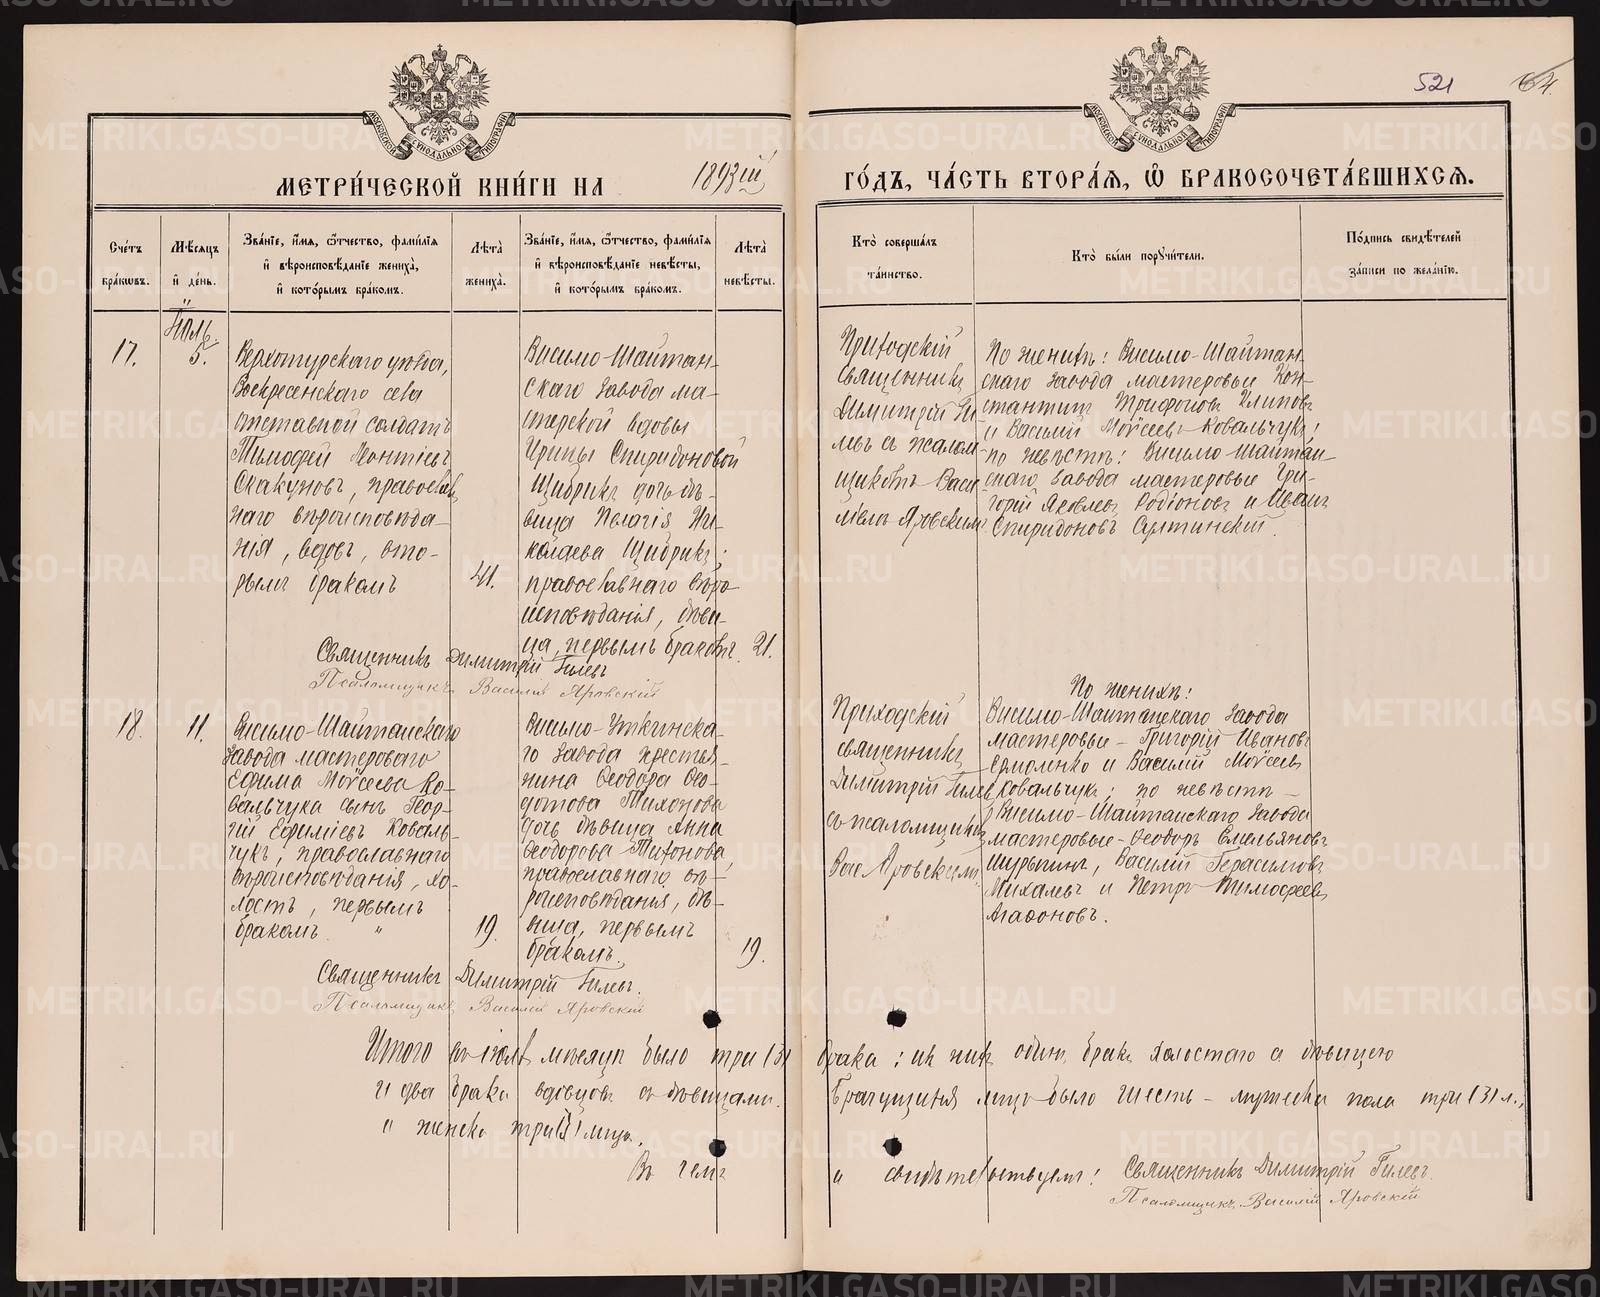 521
64.
МОСКОВСКОЙ СѴНОДАЛЬНОЙ ТИПОГРАФІИ
МОСКОВСКОЙ СѴНОДАЛЬНОЙ ТИПОГРАФІИ
МЕТРИ́ЧЕСКОЙ КНИ́ГИ НА 1893ій
ГО́ДЪ, ЧА́СТЬ ВТОРА́Я, Ѽ БРАКОСОЧЕТА́ВШИХСЯ.
Сче́тъ бра́кѡвъ.
Мѣ́сяцъ и҆ де́нь.
Зва́нїе, и҆́мя, ѻ҆́тчество, фами́лїя и҆ вѣроисповѣ́данїе жениха̀, и҆ кото́рымъ бра́комъ.
Лѣ́та жениха̀.
Зва́нїе, и҆́мя, ѻ҆́тчество, фами́лїя и҆ вѣроисповѣ́данїе невѣ́сты, и҆ кото́рымъ бра́комъ.
Лѣ́та невѣ́сты.
Кто̀ соверша́лъ та́инство.
Кто̀ бы́ли порꙋчи́тели.
По́дпись свидѣ́телей за́писи по жела́нїю.
Іюль.
17.
5.
Верхотурскаго уѣзда,
Воскресенскаго села
отставной солдатъ
Тимофей Леонтіевъ
Скакуновъ, православ
наго вѣроисповѣда-
нія, вдовъ, вто-
рымъ бракомъ
41.
Висимо-Шайтан-
скаго завода ма-
стерской вдовы
Ирины Спиридоновой
Щибрикъ дочь дѣ-
вица Пелагія Ни-
колаева Щибрикъ;
православнаго вѣро
исповѣданія, дѣви-
ца, первымъ бракомъ.
21.
Приходскій
священникъ
Димитрій Ги
левъ съ псалом-
щикомъ Васи
ліемъ Яровскимъ
По женихѣ: Висимо-Шайтан-
скаго завода мастеровые Кон-
стантинъ Трифоновъ
и Василій Моѵсеевъ Ковальчукъ;
по невѣстѣ: Висимо-Шайтан-
скаго завода мастеровые Гри-
горій Яковлевъ Родіоновъ и Иванъ
Спиридоновъ
Священникъ Димитрій Гилевъ
Псаломщикъ Василій Яровскій
18.
11.
Висимо-Шайтанскаго
завода мастероваго
Ефима Моѵсеева Ко-
вальчука сынъ Геор-
гій Ефиміевъ Коваль-
чукъ, православнаго
вѣроисповѣданія, хо-
лостъ, первымъ
бракомъ "
19.
Висимо-Уткинска-
го завода крестья-
нина Ѳеодора Ѳео-
дотова Тихонова
дочь дѣвица Анна
Ѳеодорова Тихонова,
православнаго вѣ-
роисповѣданія, дѣ-
вица, первымъ
бракомъ.
19.
Приходскій
священникъ
Димитрій Гилевъ
съ псаломщикомъ
Вас Яровскимъ.
По женихѣ:
Висимо-Шайтанскаго завода
мастеровые - Григорій Ивановъ
Ермоленко и Василій Моѵсеевъ
Ковальчукъ; по невѣстѣ -
Висимо-Шайтанскаго завода
мастеровые - Ѳеодоръ Емельяновъ
Шурыгинъ, Василій Герасимовъ
Михалевъ и Петръ Тимофеевъ
Агафоновъ.
Священникъ Димитрій Гилевъ.
Псаломщикъ Василій Яровскій
Итого въ іюлѣ мѣсяцѣ было три (3) брака: изъ нихъ одинъ бракъ холостаго съ дѣвицею
и два брака вдовцовъ съ дѣвицами. Брачущихся лицъ было шесть - мужеска пола три (3) л.,
и женска три (3) лицъ.
Въ чемъ и свидѣтельствуемъ: Священникъ Димитрій Гилевъ.
Псаломщикъ Василій Яровскій
METRIKI.GASO-URAL.RU